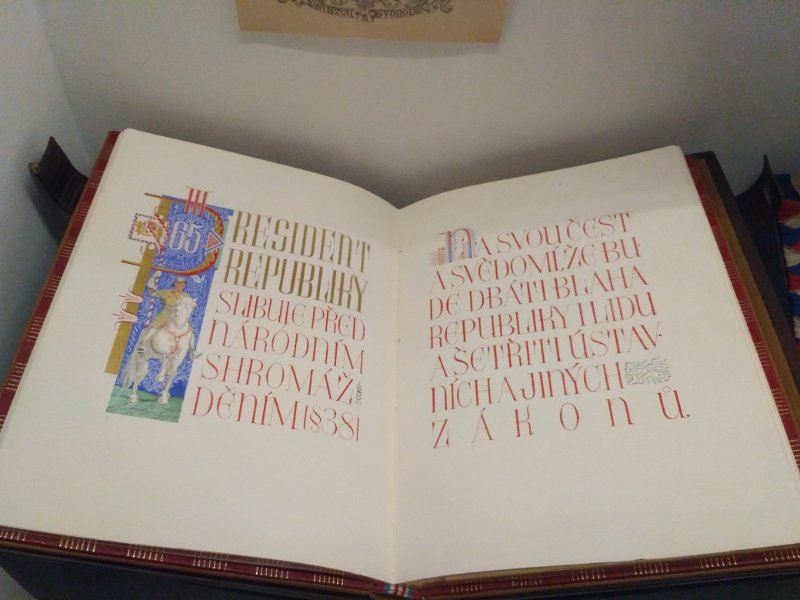 § 65
PRESIDENT
REPUBLIKY
SLIBUJE PŘED
NÁRODNÍM
SHROMÁŽ,
DĚNÍM (§38)
NA SVOU ČEST
A SVĚDOMÍ, ŽE BU-
DE DBÁTI BLAHA
REPUBLIKY I LIDU
A ŠETŘITI ÚSTAV-
NÍCH A JINÝCH
ZÁKONŮ.